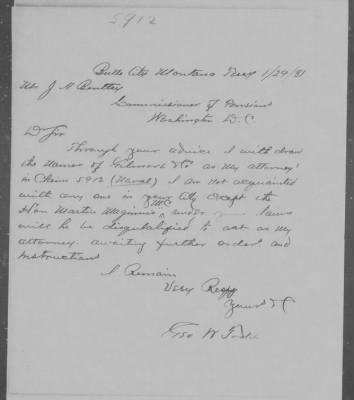 5912
Butte City Montana Terr 1/29/81
J A Bentley
Commissioner of Pensions
Washington D.C.
Dr Sir
Through your advice I will draw
the names of Gilmore & Co as my attorney
in Claim 5912 (Naval) I am not acquainted
with any one in your City except the
Hon Martin Maginnis MC under your laws
will he be disqualified to act as my
attorney. awaiting further orders and
instructions
I Remain
Very Respy
Yours &c
Geo W